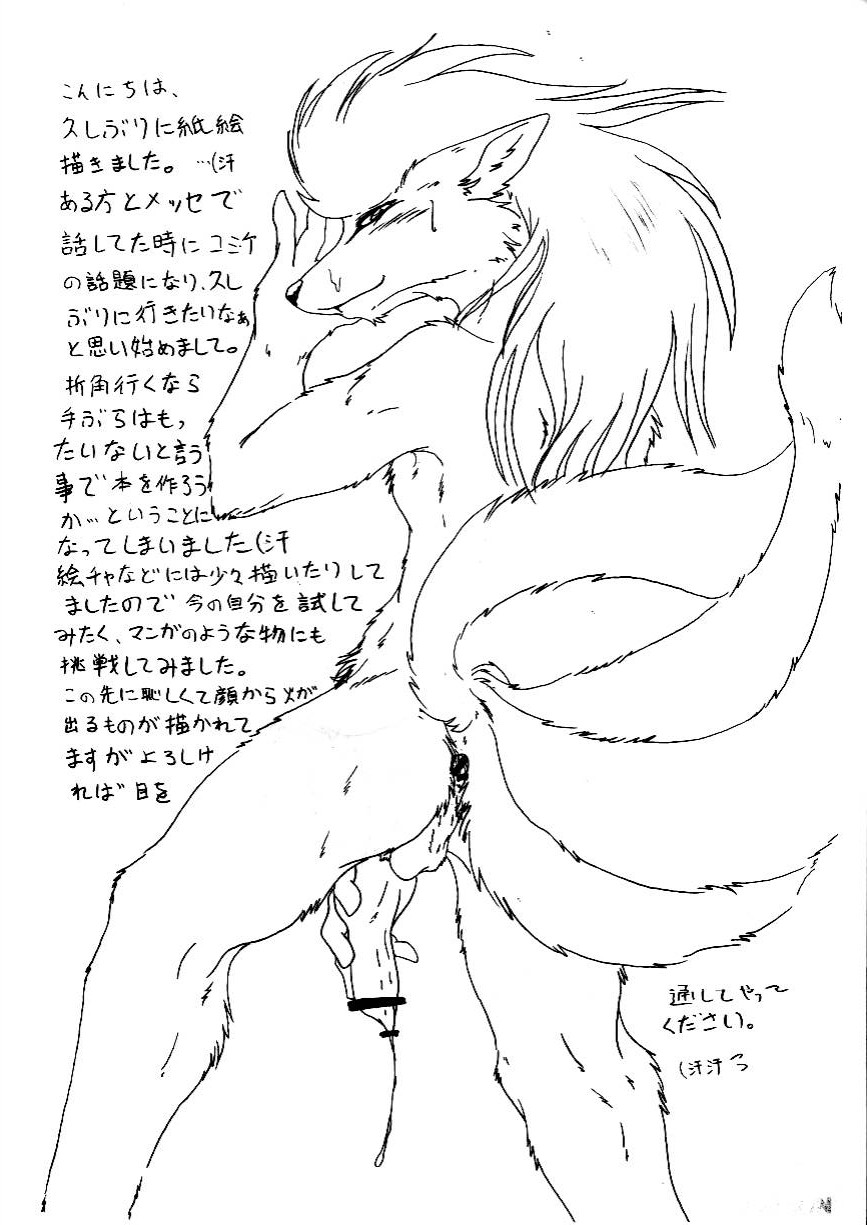 こんにちは、
久しぶりに紙絵
描きました。…(汗
ある方とメッセで
話してた時にコミケ
の話題になり、久し
ぶりに行きたいなぁ
と思い始めまして。
折角行くなら
手ぶらはもっ
たいないと言う
事で本を作ろう
か…ということに
なってしまいました(汗
絵チャなどには少々描いたりして
ましたので今の自分を試して
みたく、マンガのような物にも
挑戦してみました。
この先に恥しくて顔から火が
出るものが描かれて
ますがよろしけ
れば目を
通してやって
ください。
(汗汗